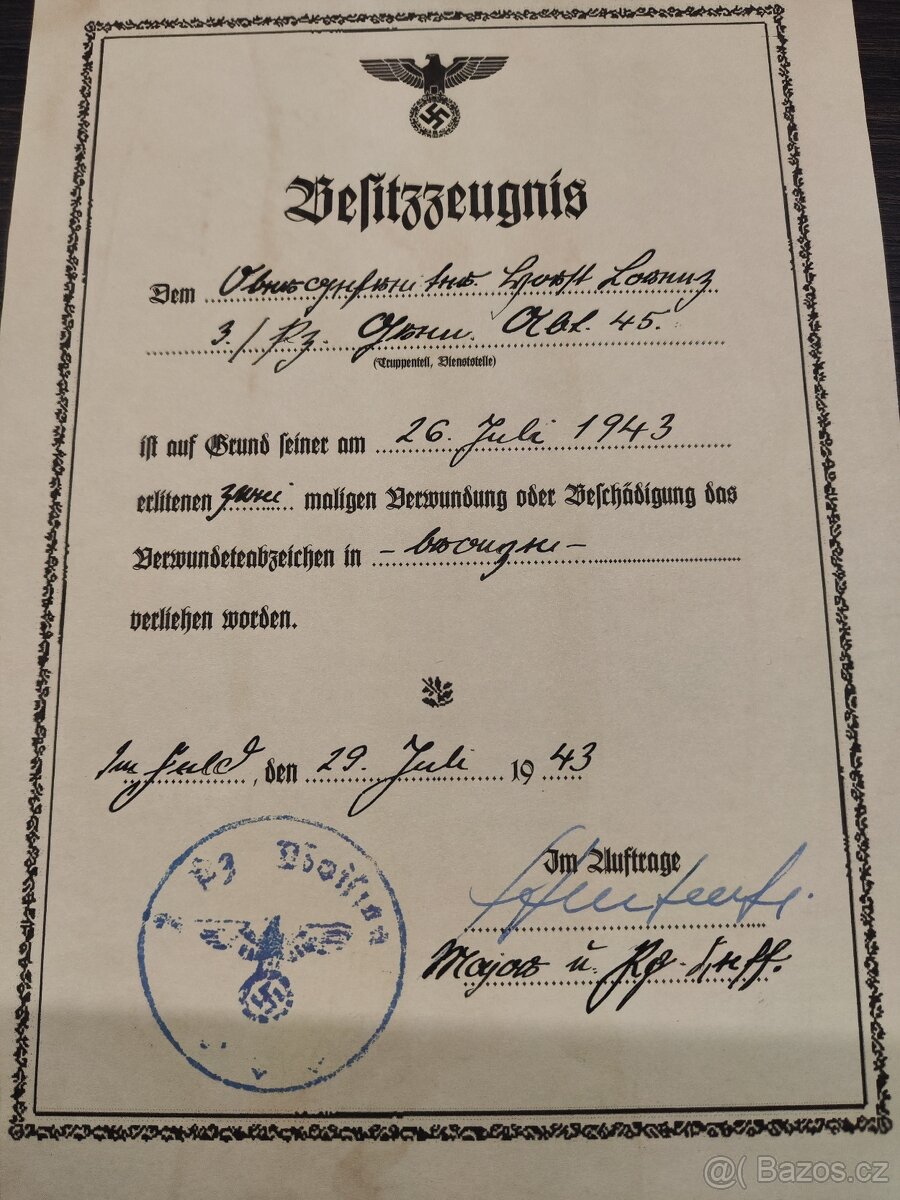 Besitzzeugnis
Dem Obergefreiter Horst Lorenz
3./Pz. Gren. Abt. 45.
(Truppenteil, Dienststelle)
ist auf Grund seiner am 26. Juli 1943
erlitenen zwei maligen Verwundung oder Beschädigung das
Verwundeteabzeichen in - bronze -
verliehen worden.
Im Feld, den 29. Juli 1943
Im Auftrage
Major u.
Division
@( Bazos.cz